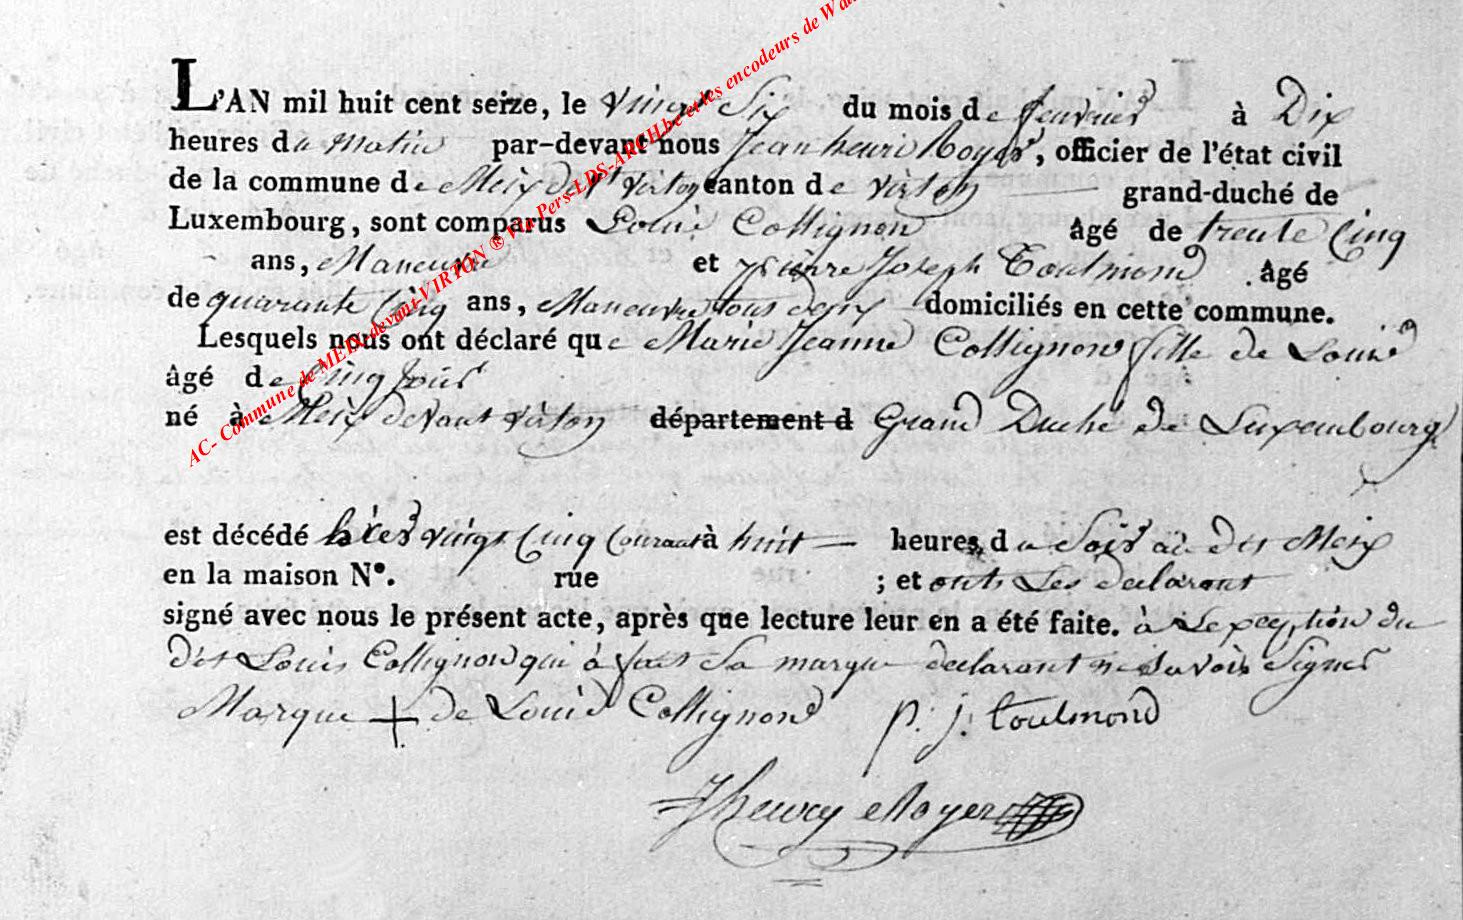 L'AN mil huit cent seize, le vingt Six du mois de fevrier à Dix
heures du Matin par-devant nous Jean henri Noyer, officier de l'état civil
de la commune de Meix dvt virton canton de virton grand-duché de
Luxembourg, sont comparus Louis Collignon âgé de trente Cinq
ans, Maneuvre et pierre Joseph Toulmond âgé
de quarante Cinq ans, Maneuvre tous deux domiciliés en cette commune.
Lesquels nous ont déclaré que Marie Jeanne Collignon fille de Louis
âgé de Cinq jours
né à Meix devant virton département d Grand Duché de Luxembourg
est décédé hier vingt Cinq Courant à huit heures du Soir au dit Meix
en la maison N°. rue ; et onts Les declarant
signé avec nous le présent acte, après que lecture leur en a été faite. à Lexception du
dit Louis Collignon qui à fait Sa marque declarant ne Savoir Signer
Marque + de Louis Collignon p. j. toulmond
Jhenry Noyer
AC- Commune de MEIX-devant-VIRTON ® Via Pers-LDS-ARCH.be et les encodeurs de Wa